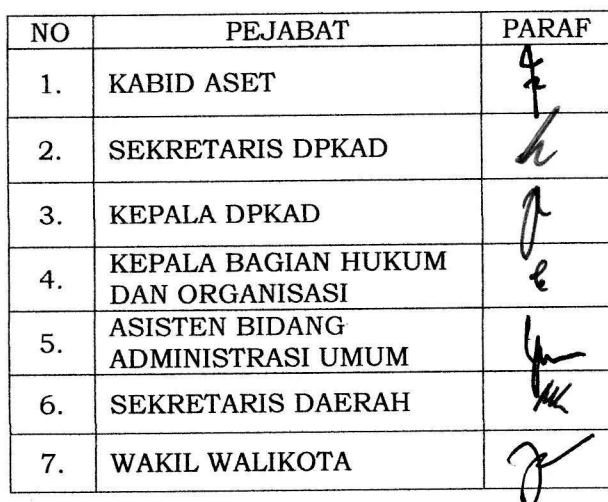 NO PEJABAT PARAF
1. KABID ASET
2. SEKRETARIS DPKAD
3. KEPALA DPKAD
4. KEPALA BAGIAN HUKUM
DAN ORGANISASI
5. ASISTEN BIDANG
ADMINISTRASI UMUM
6. SEKRETARIS DAERAH
7. WAKIL WALIKOTA